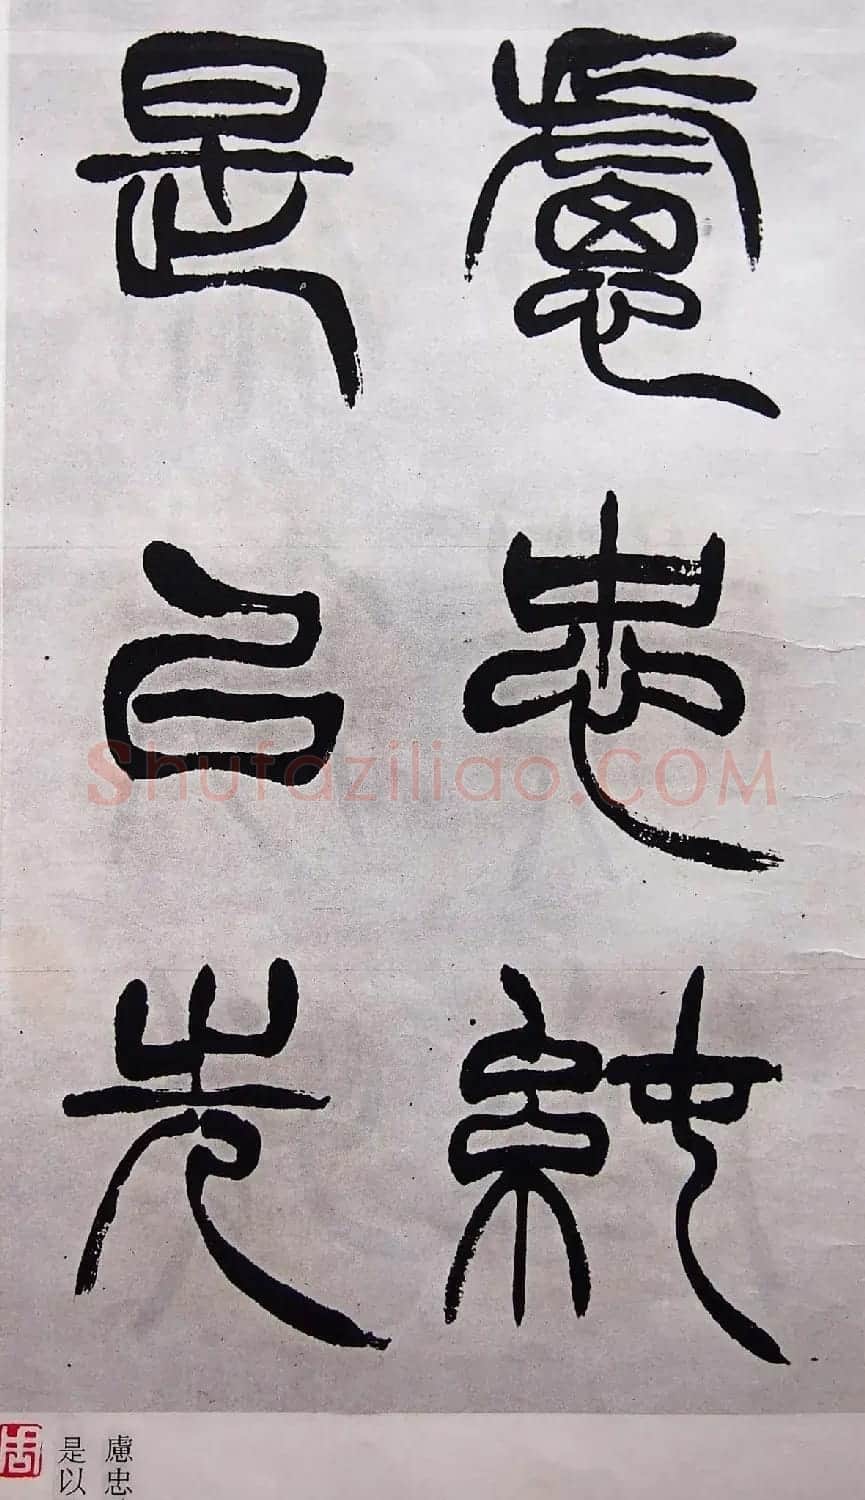 慮忠純
是以先
Shufaziliao.COM
慮忠
是以
周